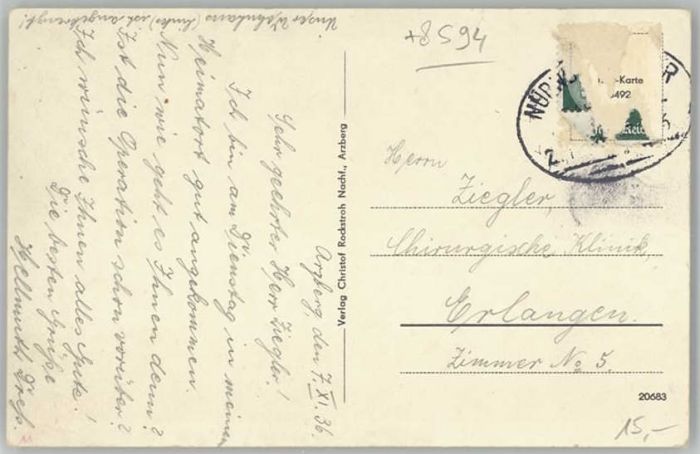 Unser Wohnhaus (links) ist angekreuzt!
Arzberg, den 7. XI. 36.
Sehr geehrter Herr Ziegler!
Ich bin am Dienstag in meinem
Heimatort gut angekommen.
Nun wie geht es Ihnen denn?
Ist die Operation schon vorüber?
Ich wünsche Ihnen alles Gute!
Die besten Grüße
Hellmuth
Verlag Christof Rockstroh Nachf., Arzberg
+8594
-Karte
492
NÜR
Herrn
Ziegler,
Chirurgische Klinik,
Erlangen.
Zimmer No 5.
20683
15,-